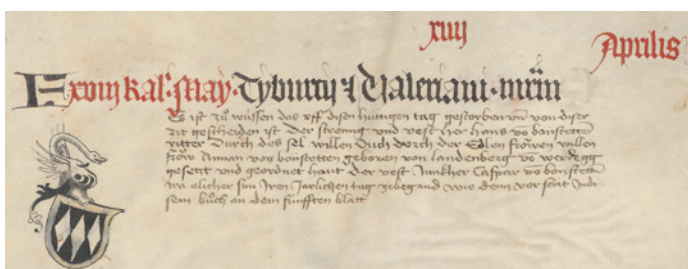 xiiij
Aprilis
F xviij kal' May · Tyburcij et Valeriani · mrm̄
Es ist zů wüssen das vff disen hüttigen tag gestorben vn̄ von diser
zit gescheiden ist Der streng vnd vest her hans vō bonstettē
ritter Durch des sel willen Ouch dorch der Edlen frowen willen
frow Annan von bonstetten geboren von landenberg vō werdegg
gesetzt vnd geordnet haut der vest Junkher Caspar vo bonstettē
ira elicher sun Iren Jarlichen tag zebegand wie denn vor stat Indi-
sem bůch an dem fünfften blatt